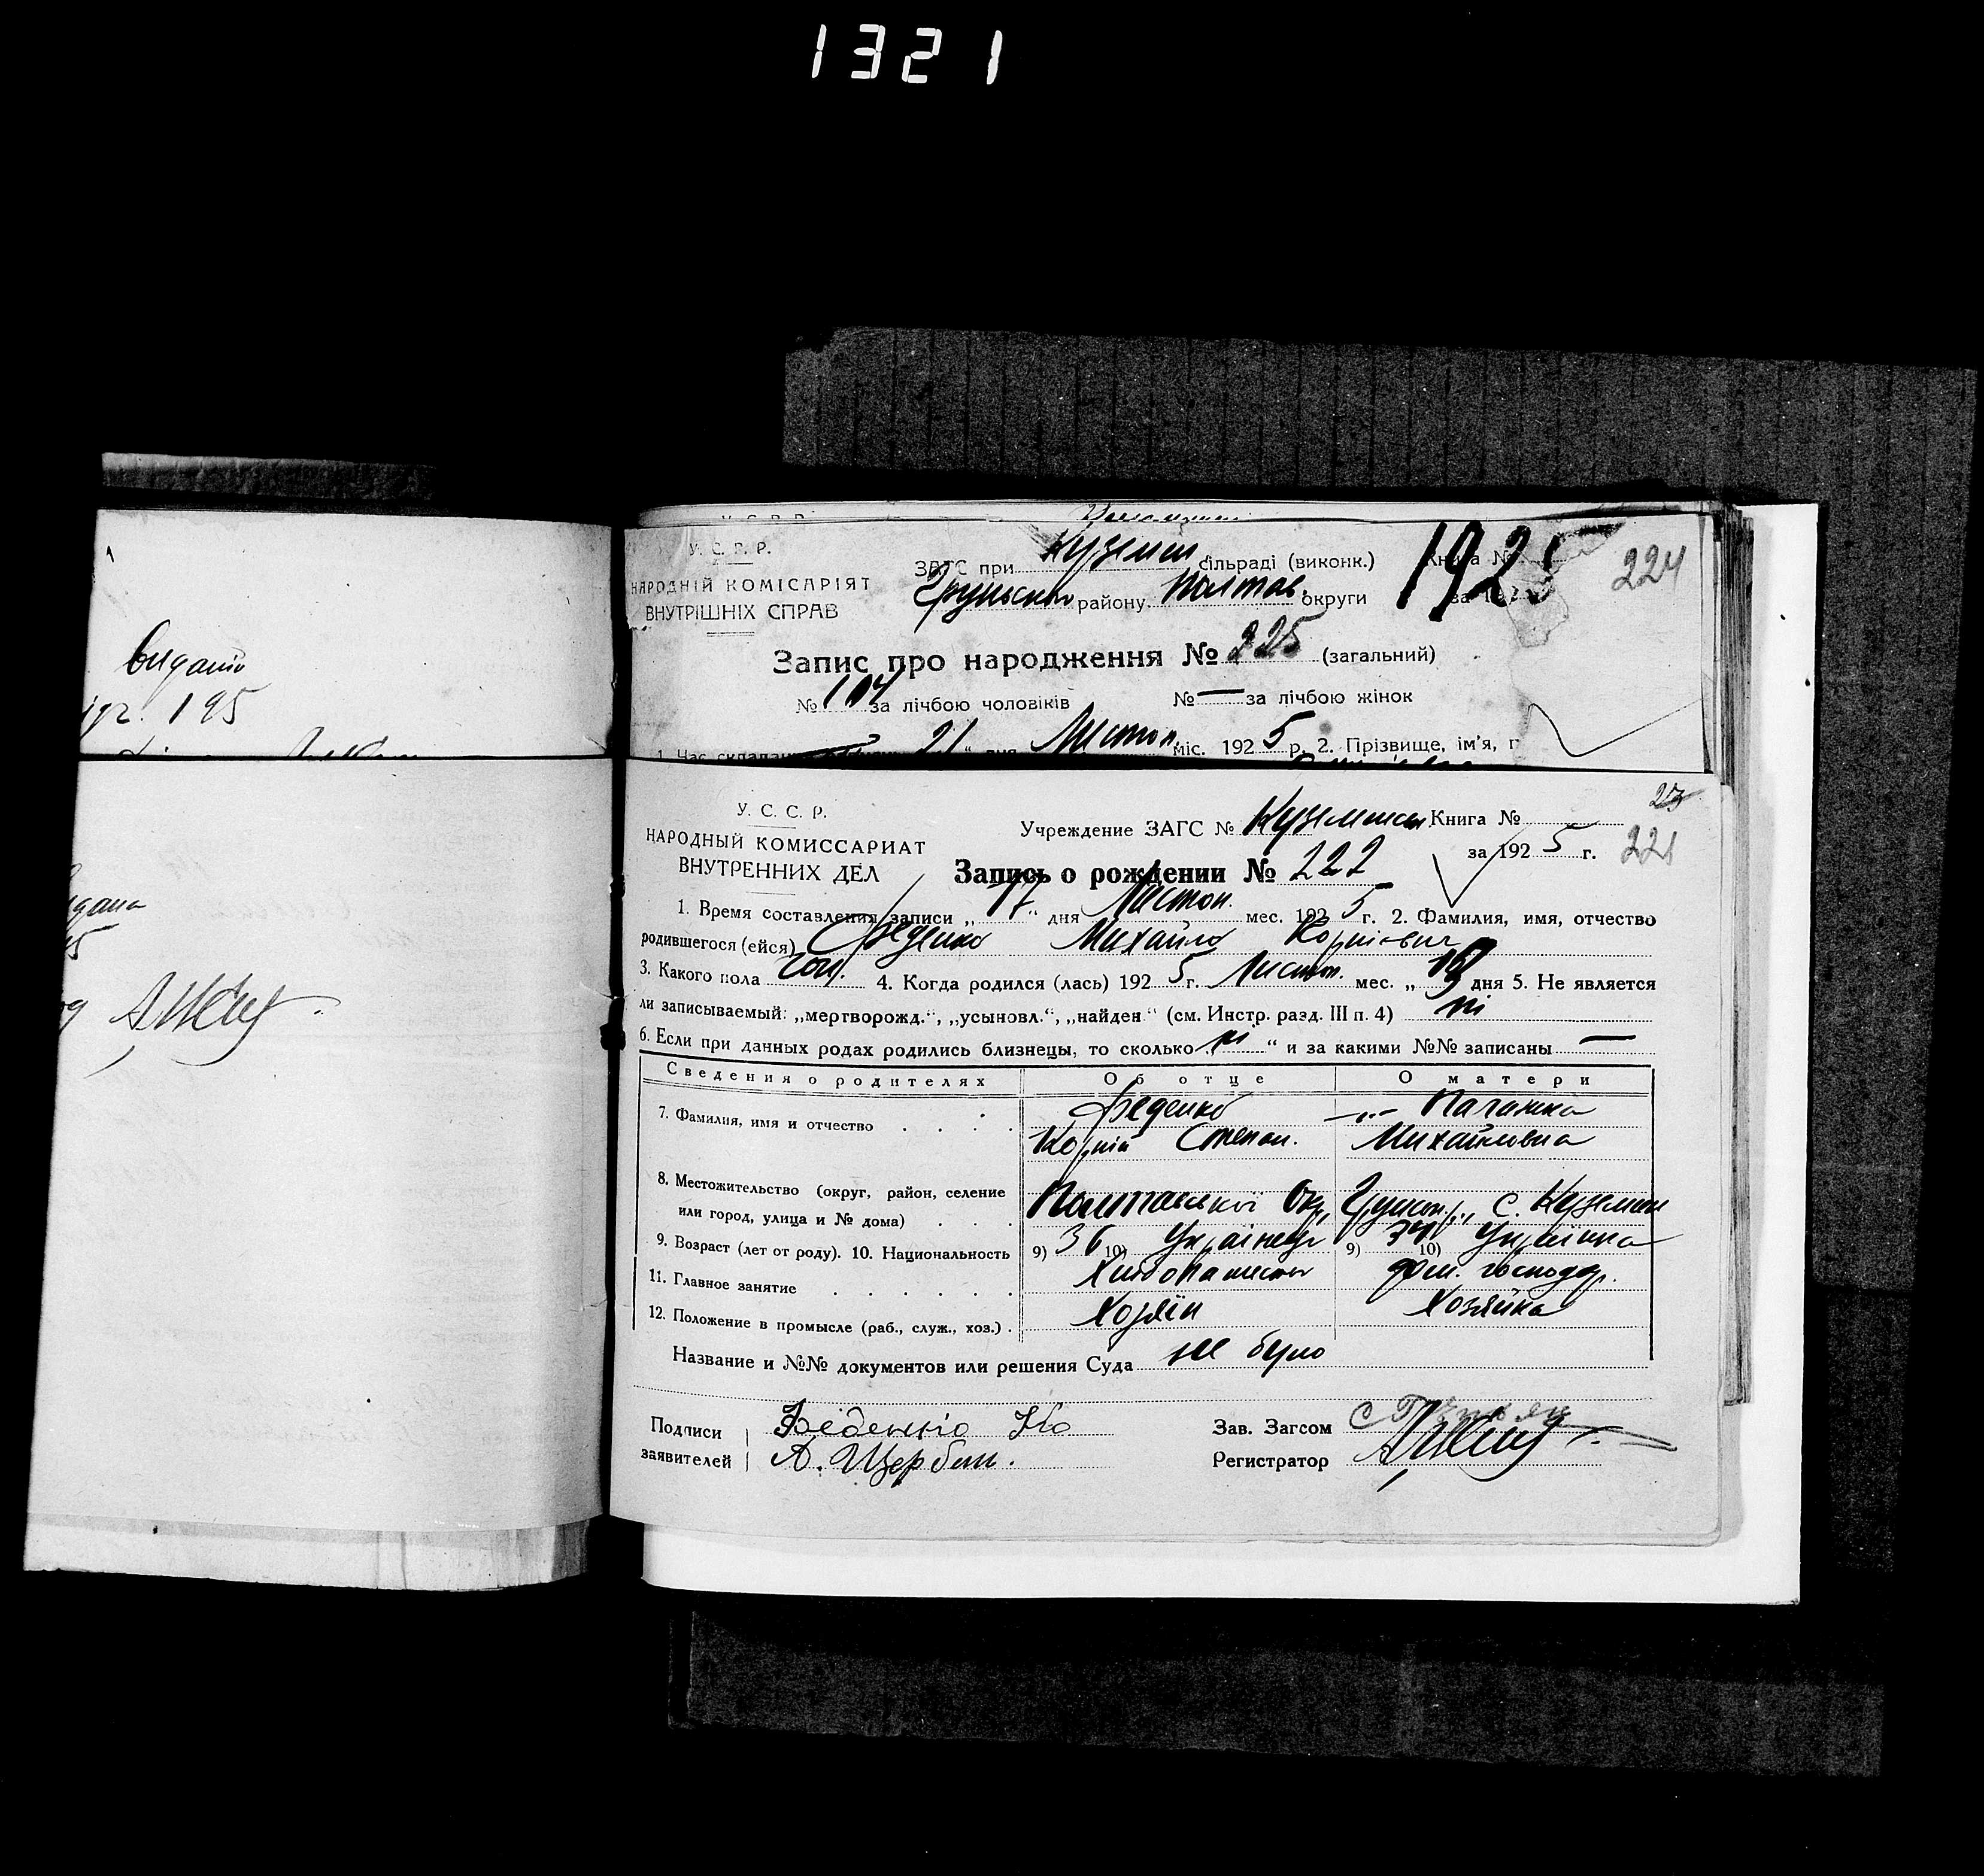 1321
видано
195
У. С. Р. Р.
НАРОДНІЙ КОМІСАРІЯТ
ВНУТРІШНІХ СПРАВ
ЗАГС при Куземин. сільраді (виконк.) Книга №
Грунськ району Полтав. округи за 192
1925
224
Запис про народження № 225 (загальний)
№ 104 за лічбою чоловіків № — за лічбою жінок
21 " дня Листоп. міс. 1925 р. 2. Прізвище, ім'я, п
У. С. С. Р.
НАРОДНЫЙ КОМИССАРИАТ
ВНУТРЕННИХ ДЕЛ
Учреждение ЗАГС № Кузeминск. Книга №
за 1925 г.
221
Запись о рождении № 222
1. Время составления записи „17" дня Листоп. мес. 1925 г. 2. Фамилия, имя, отчество
родившегося (ейся) Феденко Михайло Корнієвич
3. Какого пола чол. 4. Когда родился (лась) 1925 г. Листоп. мес. „ дня 5. Не является
ли записываемый: „мертворожд.", „усыновл.", „найден" (см. Инстр. разд. III п. 4) ні
6. Если при данных родах родились близнецы, то сколько „ні" и за какими №№ записаны —
Сведения о родителях Об отце О матери
7. Фамилия, имя и отчество Феденко —„— Палажка
Корній Степан. Михайловна
8. Местожительство (округ, район, селение
или город, улица и № дома) Полтавської Окр, Грунськ. р., с. Куземин
9. Возраст (лет от роду). 10. Национальность 9) 36 10) Українець 9) 34 10) Українка
11. Главное занятие Хлібопашество дом. господар.
12. Положение в промысле (раб., служ., хоз.) Хозяїн Хозяйка
Название и №№ документов или решения Суда не було
Подписи Феденко
заявителей А. Щербин.
Зав. Загсом
Регистратор